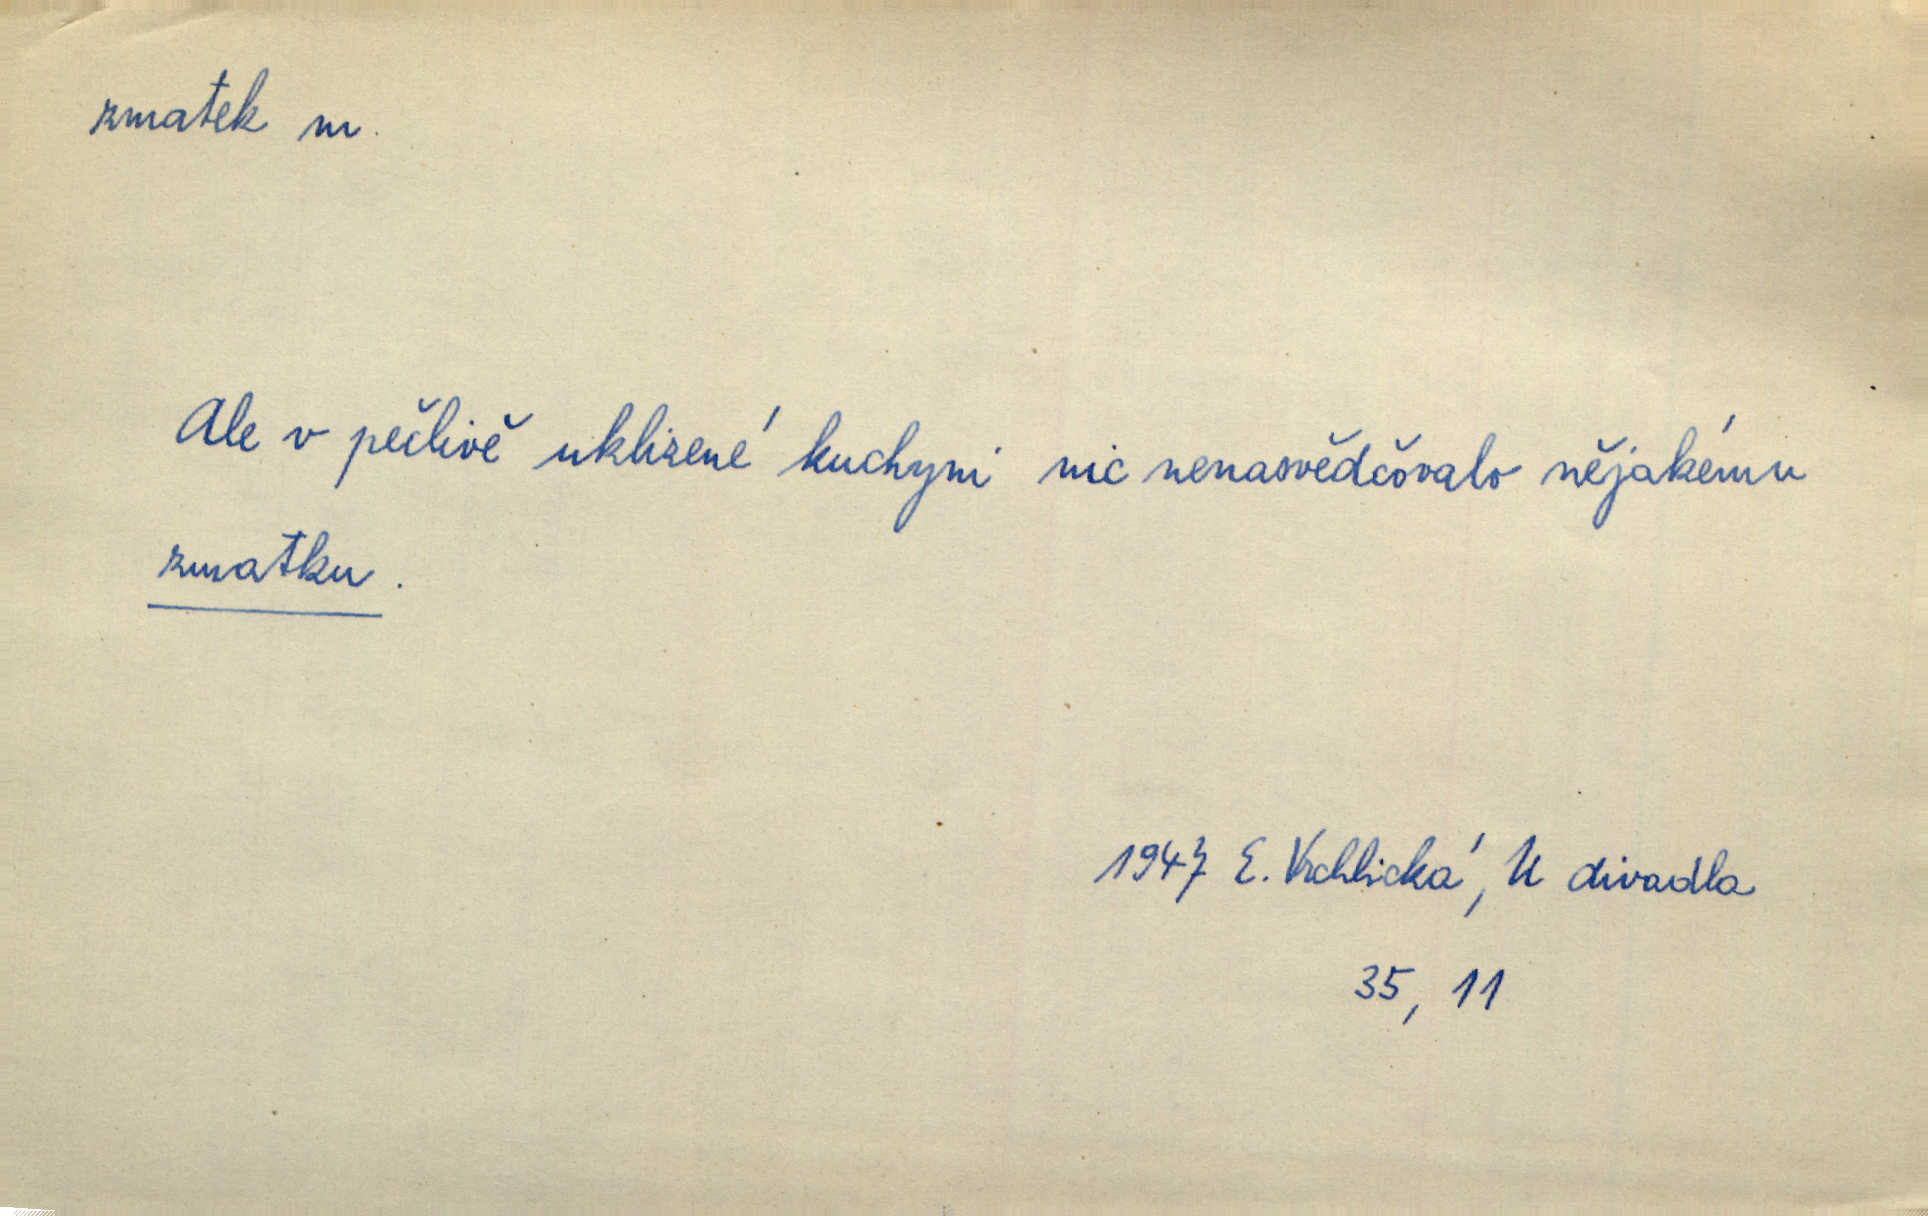 zmatek m.
Ale v pečlivě uklizené kuchyni nic nenasvědčovalo nějakému
zmatku.
1947 E. Vrchlická, U divadla
35, 11